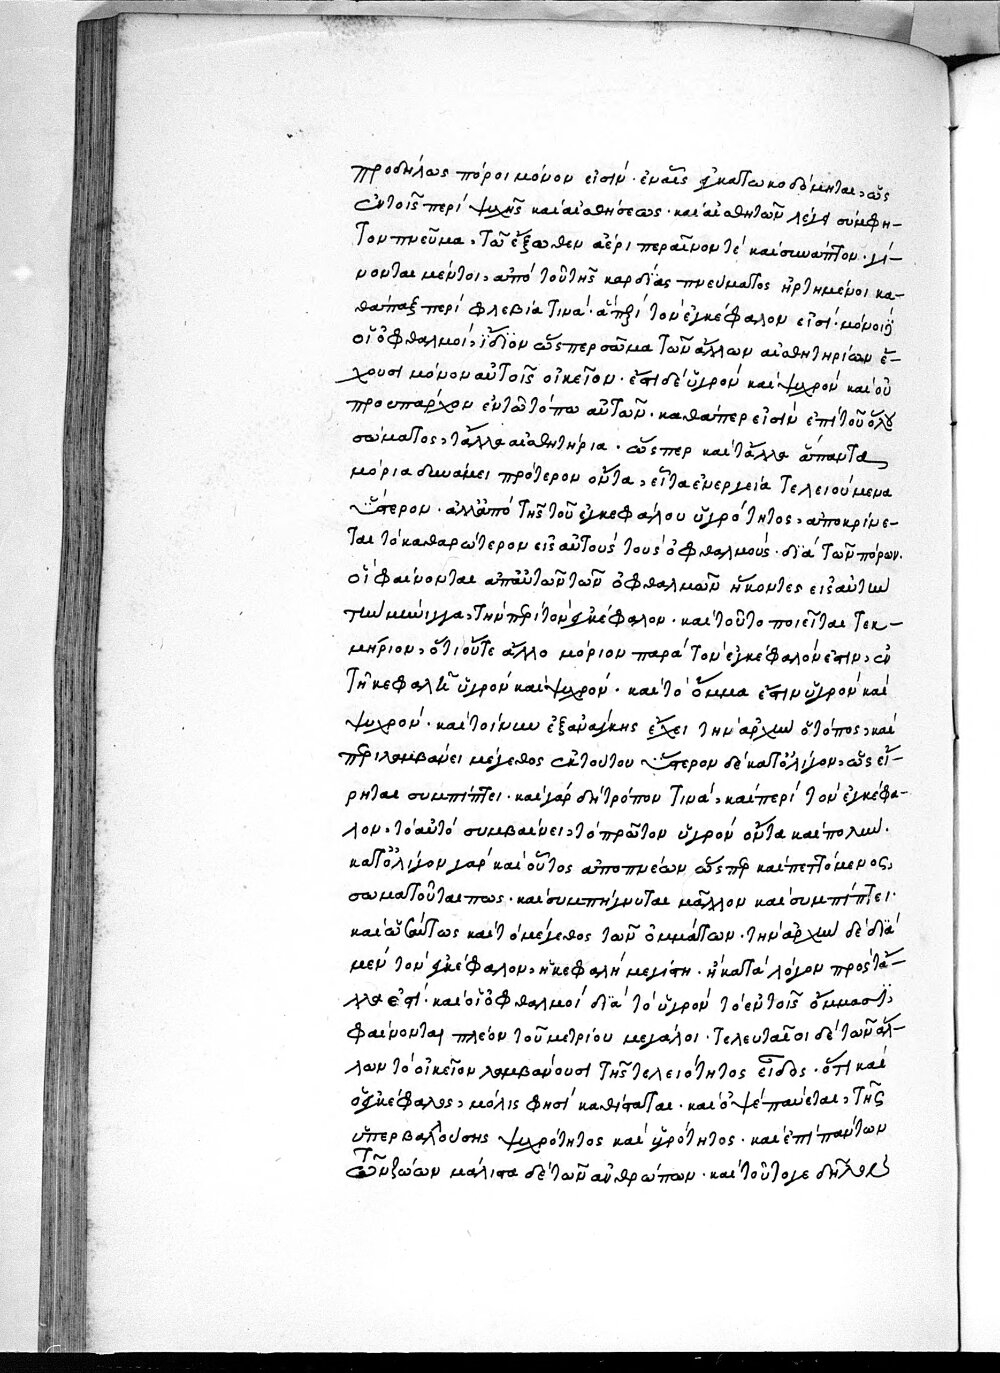 προδήλως πόροι μόνον εἰσίν· ἐν αἷς ἐγκατωκοδόμηται, ὡς
ἐν τοῖς περὶ ψυχῆς καὶ αἰσθήσεως· καὶ αἰσθητῶν λέγει σύμφη-
τον πνεῦμα, τῶ ἔξωθεν ἀέρι περαῖνον τὲ καὶ συνάπτον· γί-
νονται μέντοι, ἀπὸ τοῦ τῆς καρδίας πνεύματος ἠρτημένοι κα-
θάπαξ περὶ φλεβία τινά· ἃ περὶ τὸν ἐγκέφαλον εἰσί· μόνοι δ'
οἱ ὀφθαλμοί, ἴδιον ὥσπερ σῶμα τῶν ἄλλων αἰσθητηρίων ἔ-
χουσι μόνον αὐτοῖς οἰκεῖον· ἔστι δὲ ὑγρὸν καὶ ψυχρὸν καὶ οὐ
προυπάρχον ἐν τῶ τόπω αὐτῶν· καθάπερ εἰσὶν ἐπὶ τοῦ ὅλου
σώματος, τἄλλα αἰσθητήρια· ὥσπερ καὶ τἄλλα ἅπαντα
μόρια δυνάμει πρότερον ὄντα, εἶτα ἐνεργεία τελειούμενα
ὕστερον· ἀλλ' ἀπὸ τῆς τοῦ ἐγκεφάλου ὑγρότητος, ἀποκρίνε-
ται τὸ καθαρώτερον εἰς αὐτοὺς τοὺς ὀφθαλμούς· διὰ τῶν πόρων.
οἳ φαίνονται ἀπ' αὐτῶν τῶν ὀφθαλμῶν ἥκοντες εἰς αὐτὴν
τὴν μήνιγγα, τὴν περὶ τὸν ἐγκέφαλον· καὶ τοῦτο ποιεῖται τεκ-
μήριον, ὅτι οὔτε ἄλλο μόριον παρὰ τὸν ἐγκέφαλόν ἐστιν, ἐν
τῆ κεφαλῆ ὑγρὸν καὶ ψυχρόν· καὶ τὸ ὄμμα ἐστὶν ὑγρὸν καὶ
ψυχρόν· καὶ τοίνυν ἐξ ἀνάγκης ἔχει τὴν ἀρχὴν ὁ τόπος, καὶ
περιλαμβάνει μέγεθος ἐν τούτου ὕστερον δὲ κατ' ὀλίγον, ὡς εἴ-
ρηται συμπίπτει· καὶ γὰρ δὴ τρόπον τινὰ, καὶ περὶ τὸν ἐγκέφα-
λον, τὸ αὐτὸ συμβαίνει, τὸ πρῶτον ὑγρὸν ὄντα καὶ πολὺν.
κατ' ὀλίγον γὰρ καὶ οὗτος ἀποπνέων ὥσπερ καὶ πεττόμενος,
σωματοῦται πως· καὶ συμπήγνυται μᾶλλον καὶ συμπίπτει·
καὶ ὡσαύτως καὶ τὸ μέγεθος τῶν ὀμμάτων· τὴν ἀρχὴν δὲ διὰ
μὲν τὸν ἐγκέφαλον, ἡ κεφαλὴ μεγίστη· ἢ κατὰ λόγον πρὸς τἄ-
λλα ἐστί· καὶ οἱ ὀφθαλμοὶ διὰ τὸ ὑγρὸν τὸ ἐν τοῖς ὄμμασιν,
φαίνονται πλέον τοῦ μετρίου μεγάλοι· τελευταῖοι δὲ τῶν ἄλ-
λων τὸ οἰκεῖον λαμβάνουσι τῆς τελειότητος εἶδος· ὅτι καὶ
ὁ ἐγκέφαλος, μόλις φησὶ καθίσταται· καὶ ὀψὲ παύεται, τῆς
ὑπερβαλλούσης ψυχρότητος καὶ ὑγρότητος· καὶ ἐπὶ πάντων
τῶν ζώων μάλιστα δὲ τῶν ἀνθρώπων· καὶ τοῦτό γε δῆλον ἐξ